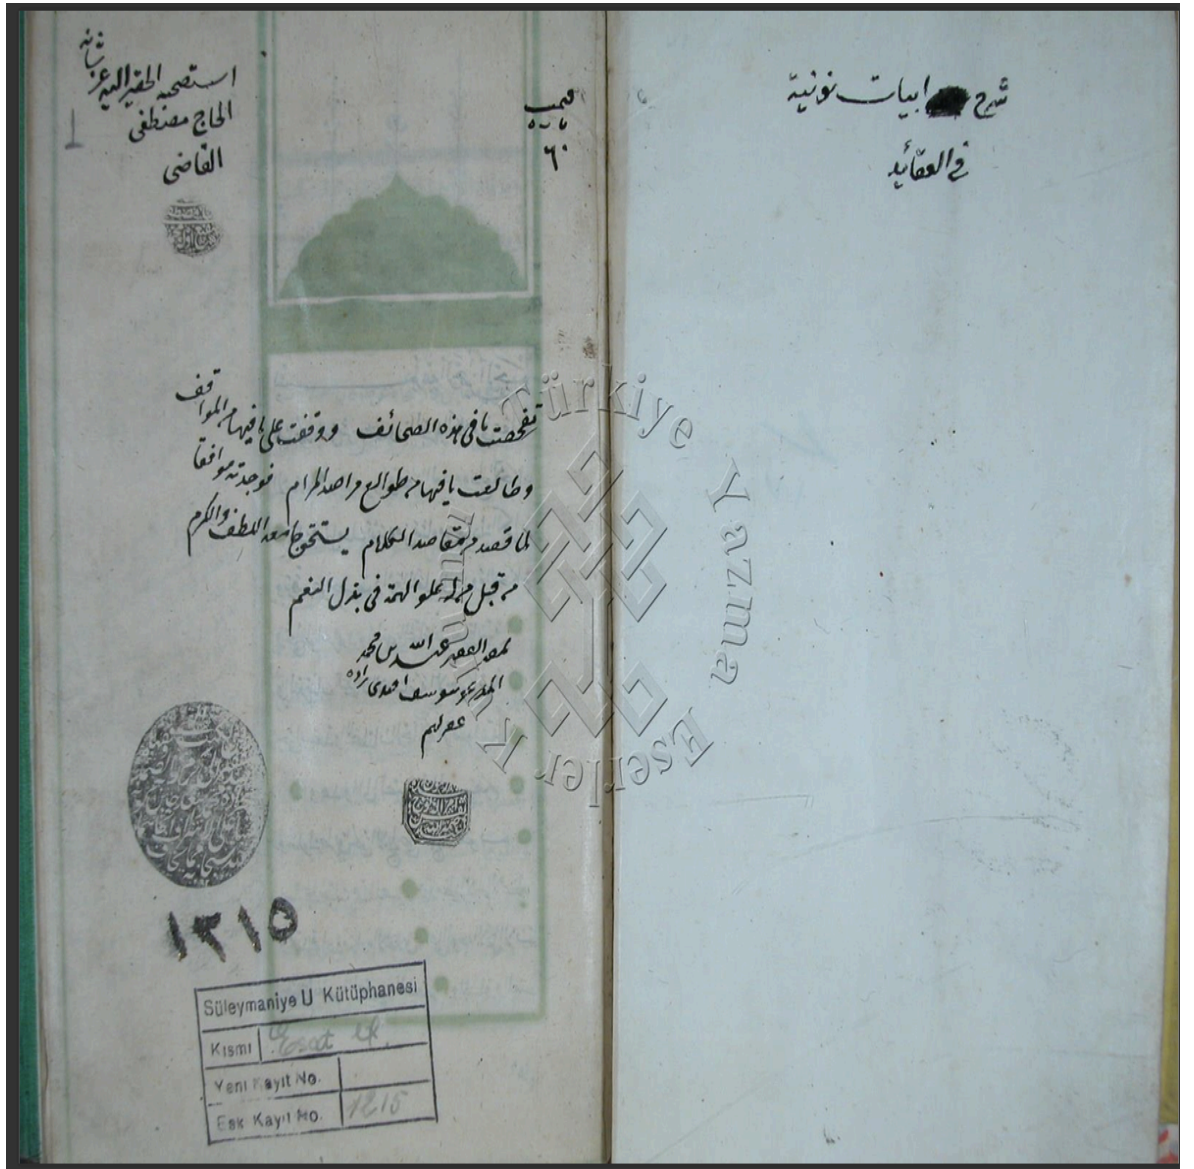 شرح ابيات نونية
في العقائد
استصحبه الحقير اليه عز شانه
الحاج مصطفى
القاضى
قيمت
پاره
٦٠
تفحصت ما في هذه الصحائف ووقفت على ما فيها من المواقف
وطالعت ما فيها من طوالع مراصد المرام فوجدته موافقا
لما قصد من مقاصد الكلام يستحق جامعه اللطف والكرم
من قبل من له علو الهمة في بذل النعم
عبد الله بن محمد
١٢١٥
Süleymaniye U Kütüphanesi
Kısmı Esat Ef.
Yeni Kayıt No.
Esk Kayıt No. 1215
Türkiye Yazma Eserler